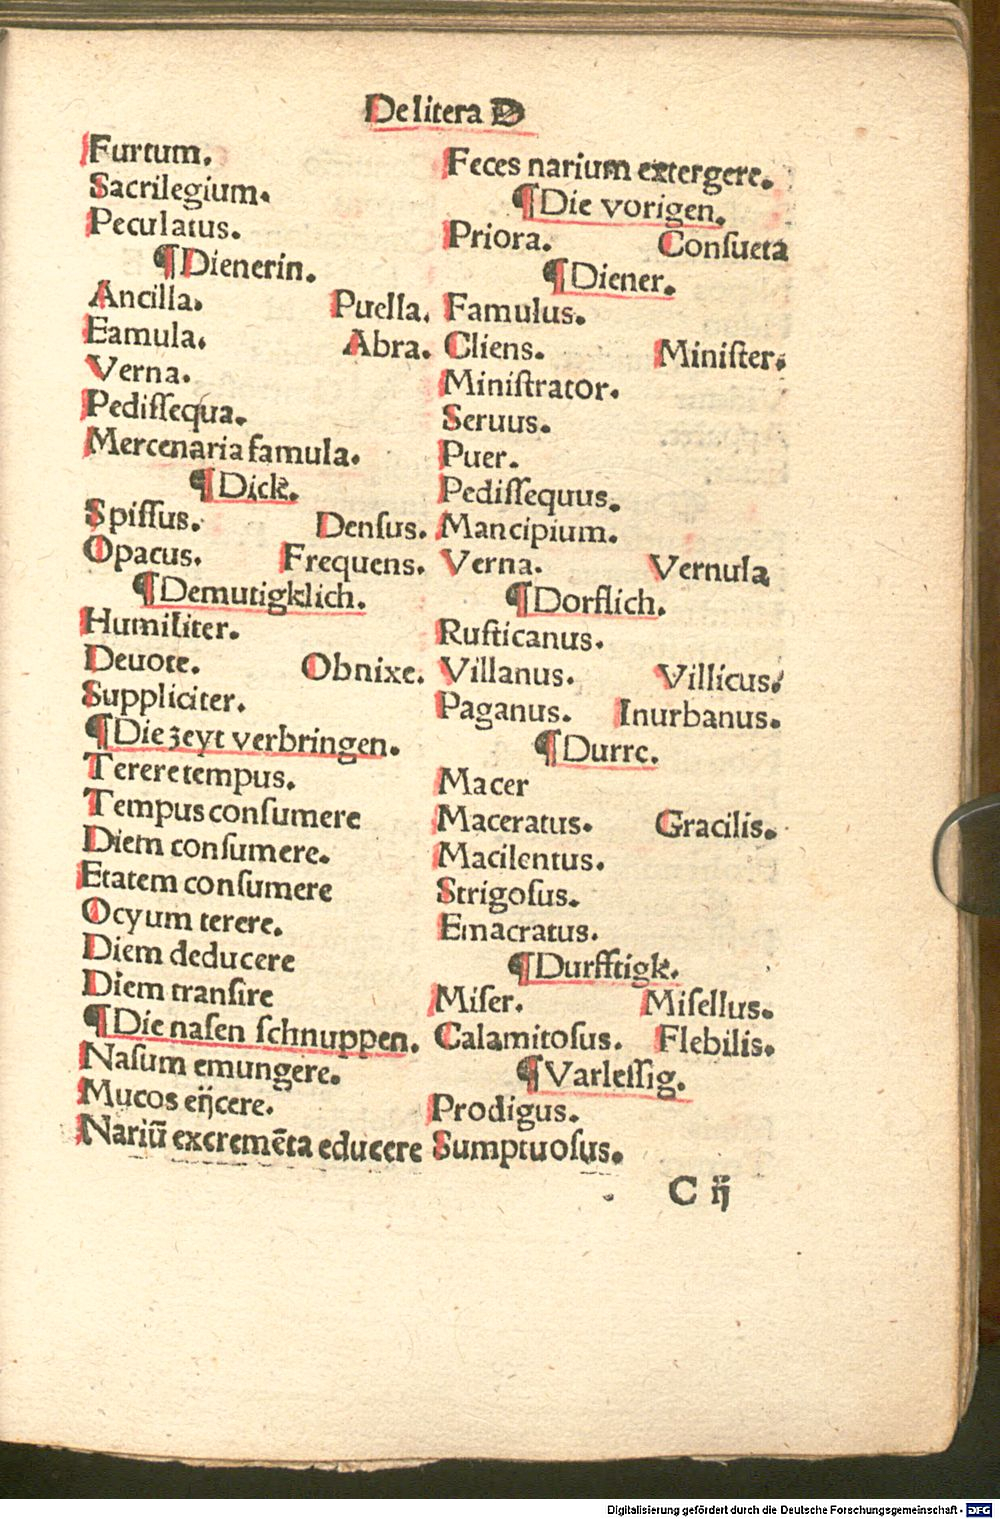 De litera D
Furtum.
Sacrilegium.
Peculatus.
¶Dienerin.
Ancilla. Puella.
Eamula. Abra.
Verna.
Pediſſequa.
Mercenaria famula.
¶Dick.
Spiſſus. Denſus.
Opacus. Frequens.
¶Demutigklich.
Humiliter.
Deuote. Obnixe.
Suppliciter.
¶Die zeyt verbringen.
Terere tempus.
Tempus conſumere
Diem conſumere.
Etatem conſumere
Ocyum terere.
Diem deducere
Diem tranſire
¶Die naſen ſchnuppen.
Naſum emungere.
Mucos eijcere.
Nariū excremēta educere
Feces narium extergere.
¶Die vorigen.
Priora. Conſueta
¶Diener.
Famulus.
Cliens. Miniſter.
Miniſtrator.
Seruus.
Puer.
Pediſſequus.
Mancipium.
Verna. Vernula
¶Dorflich.
Ruſticanus.
Villanus. Villicus.
Paganus. Inurbanus.
¶Durre.
Macer
Maceratus. Gracilis.
Macilentus.
Strigoſus.
Emacratus.
¶Durfftigk.
Miſer. Miſellus.
Calamitoſus. Flebilis.
¶Varleſſig.
Prodigus.
Sumptuoſus.
C ij
Digitalisierung gefördert durch die Deutsche Forschungsgemeinschaft - DFG